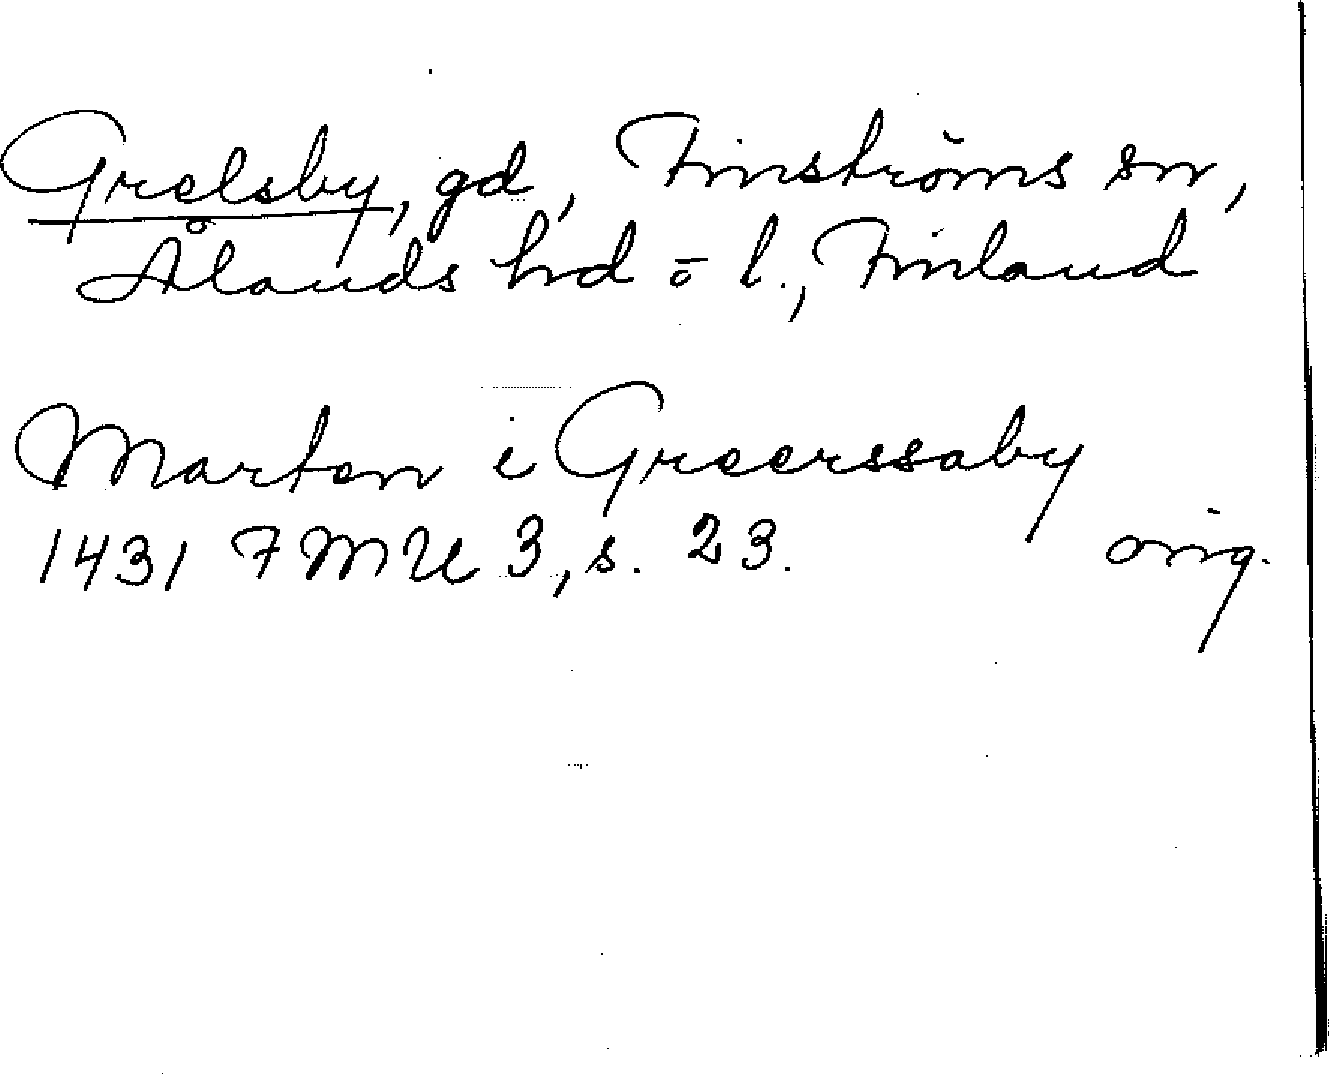 Grelsby, gd, Finströms sn,
Ålands hd o l., Finland
Marten i Greerssaby
1431 FMU 3, s. 23. orig.